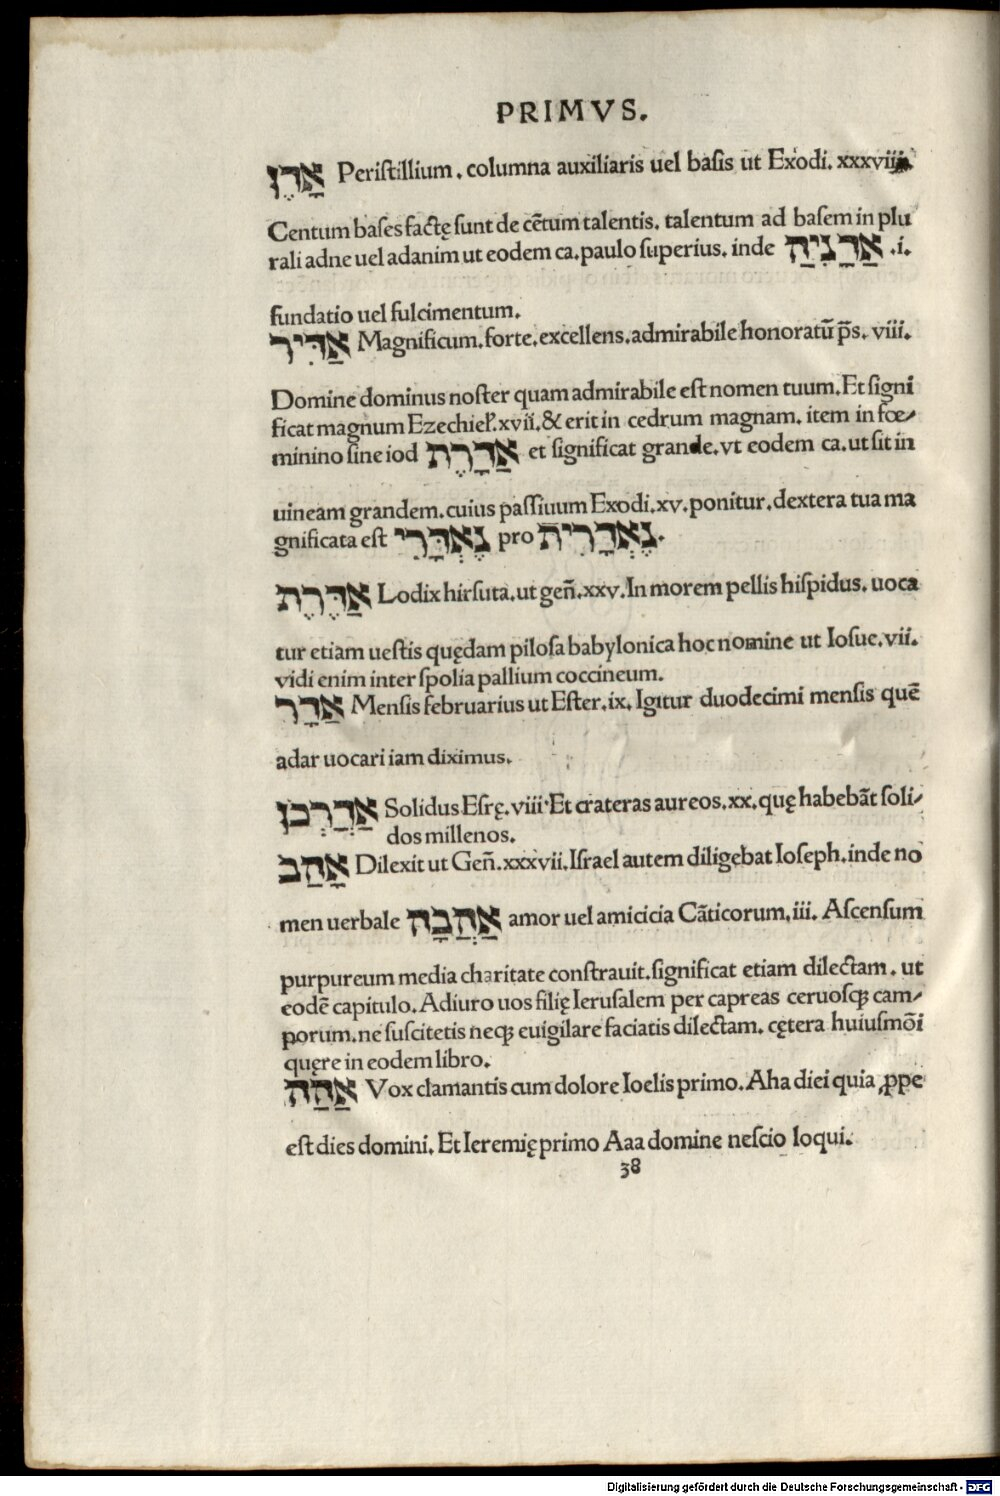 PRIMVS.
אָדֶן Peristillium. columna auxiliaris uel basis ut Exodi. xxxviii.
Centum bases factę sunt de cẽtum talentis. talentum ad basem in plu
rali adne uel adanim ut eodem ca. paulo superius. inde אַדָנִיַה .i.
fundatio uel fulcimentum.
אַדִיר Magnificum. forte. excellens. admirabile honoratũ p̃s. viii.
Domine dominus noster quam admirabile est nomen tuum. Et signi
ficat magnum Ezechiel'. xvii. & erit in cedrum magnam. item in fœ/
minino sine iod אַדָרֶת et significat grande. vt eodem ca. ut sit in
uineam grandem. cuius passiuum Exodi. xv. ponitur. dextera tua ma
gnificata est נֶאְדָרִי pro נֶאְדָרִית.
אַדֶרֶת Lodix hirsuta. ut geñ. xxv. In morem pellis hispidus. uoca
tur etiam uestis quędam pilosa babylonica hoc nomine ut Iosue. vii.
vidi enim inter spolia pallium coccineum.
אַדָר Mensis februarius ut Ester. ix. Igitur duodecimi mensis quẽ
adar uocari iam diximus.
אַדַרְכון Solidus Esrę. viii. Et crateras aureos. xx. quę habebãt soli/
dos millenos.
אָהַב Dilexit ut Geñ. xxxvii. Israel autem diligebat Ioseph. inde no
men uerbale אַהֲבָה amor uel amicicia Cãticorum. iii. Ascensum
purpureum media charitate constrauit. significat etiam dilectam. ut
eodẽ capitulo. Adiuro uos filię Ierusalem per capreas ceruosqꝫ cam/
porum. ne suscitetis neqꝫ euigilare faciatis dilectam. cętera huiusmõi
quęre in eodem libro.
אַהַה Vox clamantis cum dolore Ioelis primo. Aha diei quia ꝓpe
est dies domini. Et Ieremię primo Aaa domine nescio loqui.
38
Digitalisierung gefördert durch die Deutsche Forschungsgemeinschaft - DFG